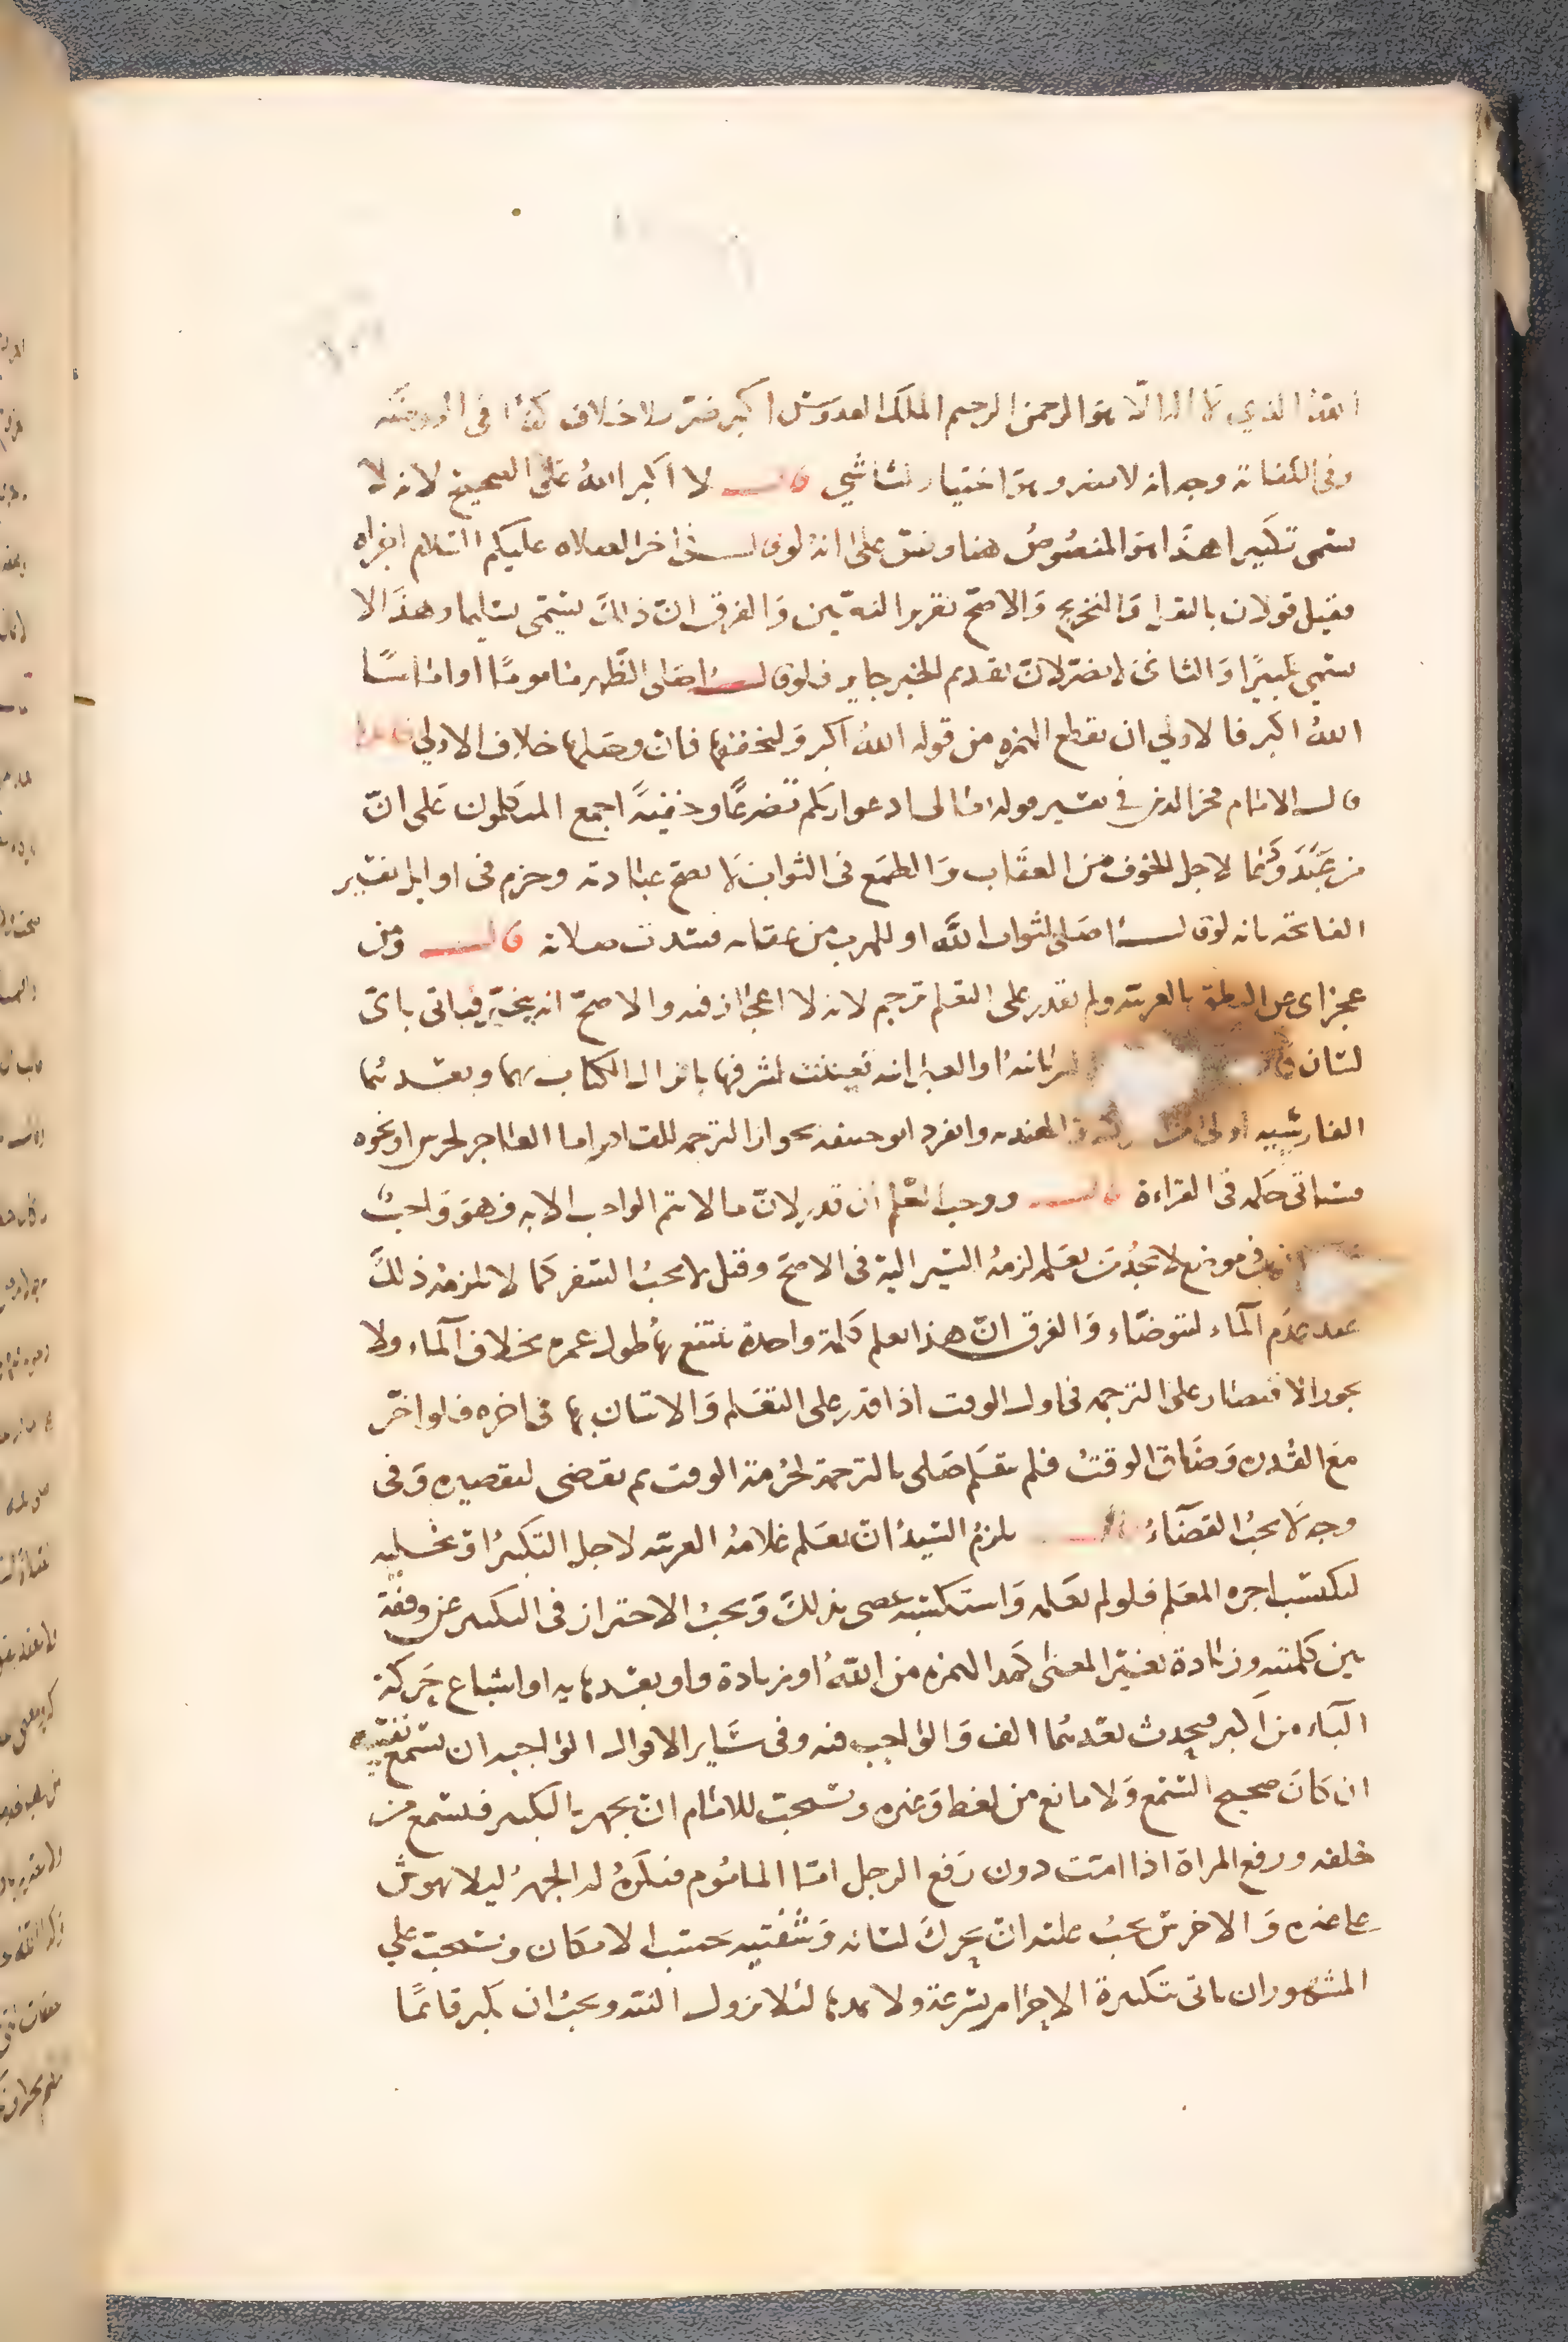 الله الذي لا اله الا هو الرحمن الرحيم الملك القدوس اكبر ضر بلا خلاف كذا في الروضة
وفي الكفاية وجه انه لا يضر وهو اختيار الشاشي قال لا اكبر الله على الصحيح لانه لا
يسمى تكبيرا هذا هو المنصوص هنا ونص على انه لو قال في اخر الصلاة عليكم السلام اجزاه
فقيل قولان بالنقل والتخريج والاصح تقرير النصين والفرق ان ذلك يسمى تسليما وهذا لا
يسمى تكبيرًا والثاني لا يضر لان تقديم الخبر جايز فلو قال اصلى الظهر ماموما او اماما
الله اكبر فالاولي ان يقطع الهمزة من قوله الله اكبر ويخففها فان وصلها خلاف الاولي
قال الامام فخر الدين في تفسير قوله تعالى ادعوا ربكم تضرعًا وخفيةً اجمع المتكلمون على ان
من عبد ودعا لاجل الخوف من العقاب والطمع في الثواب لا تصح عبادته وجزم في اوايل تفسير
الفاتحة بانه لو قال اصلى لثواب الله او للهرب من عقابه فسدت صلاته قال ومن
عجز اى عن النطق بالعربية ولم يقدر على التعلم ترجم لانه لا اعجاز فيه والاصح انه يتخير فياتى باى
لسان السريانية او العبرانية تعينت لشرفها بانزال الكتاب بهما وبعدهما
الفارسية اولى من التركية والهندية وانفرد ابو حنيفة بجواز الترجمة للقادر اما العاجز لخرس او نحوه
فسياتى حكمه في القراءة قال ووجب التعلم ان قدر لان ما لا يتم الواجب الا به فهو واجبٌ
في موضع لا يجد من يعلمه لزمه السير اليه في الاصح وقيل لا يجب السفر كما لا يلزمه ذلك
عند عدم الماء ليتوضاء والفرق ان هذا تعلم كلمة واحدة ينتفع بها طول عمره بخلاف الماء ولا
يجوز الاقتصار على الترجمة في اول الوقت اذا قدر على التعلم والاتيان بها في اخره فلو اخر
مع القدرة وضاق الوقت فلم يتعلم صلى بالترجمة لحرمة الوقت ثم يقضى لتقصيره وفي
وجه لا يجب القضاء يلزم السيد ان يعلم غلامه العربية لاجل التكبير او تخليه
ليكتسب اجرة المعلم فلو لم يعلمه واستكسبه عصى بذلك ويجب الاحتراز في التكبير عن وقفة
بين كلمتيه وزيادة تغير المعنى كمد الهمزة من الله او زيادة واو بعد هايه او اشباع حركة
الباء من اكبر فيحدث بعدهما الف والواجب فيه وفي ساير الاقوال الواجبة ان يسمع نفسه
ان كان صحيح السمع ولا مانع من لغط وغيره ويستحب للامام ان يجهر بالتكبير فيسمع من
خلفه ورفع المراة اذا امت دون رفع الرجل اما الماموم فيكره له الجهر ليلا يهوش
على غيره والاخرس يجب عليه ان يحرك لسانه وشفتيه بحسب الامكان ويستحب على
المشهور ان ياتى بتكبيرة الاحرام بسرعة ولا يمدها لئلا تزول النية ويجب ان يكبر قائمًا